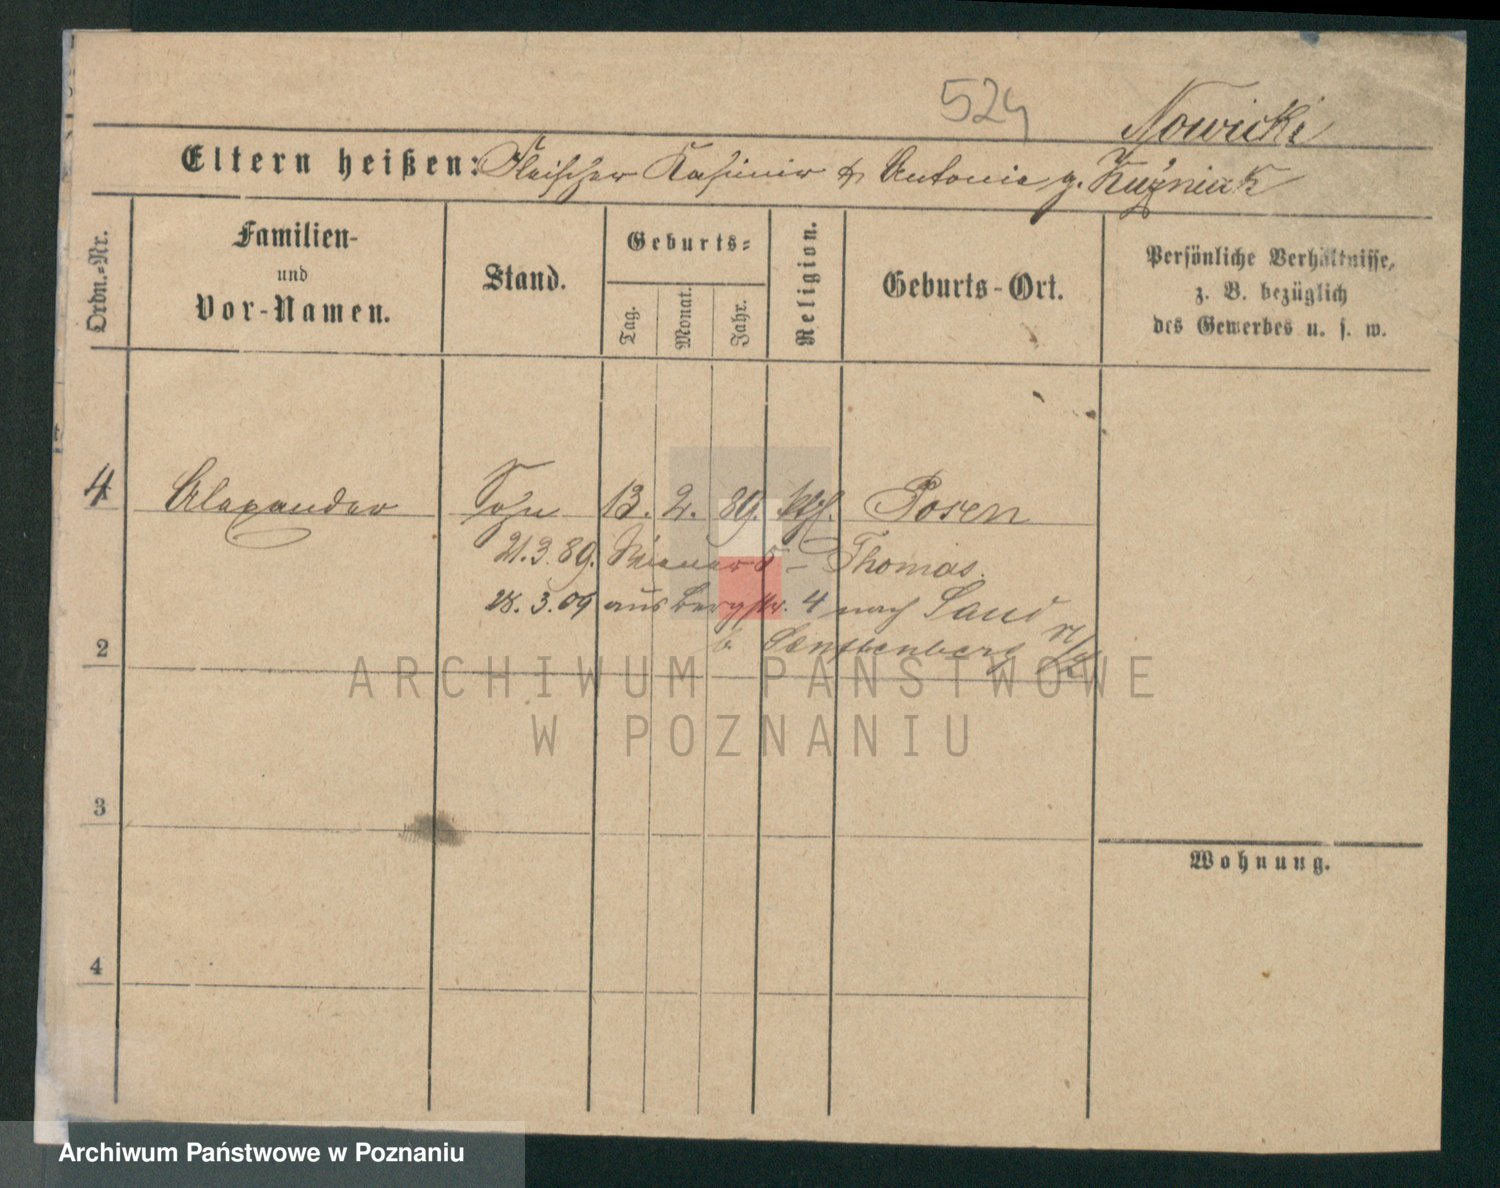 524
Nowicki
Eltern heißen: Fleischer Kasimir & Antonie g. Kuźniak
Ordn.-Nr.
Familien-
und
Vor-Namen.
Stand.
Geburts-
Tag.
Monat.
Jahr.
Religion.
Geburts-Ort.
Persönliche Verhältnisse,
z. B. bezüglich
des Gewerbes u. s. w.
4 Alexander Sohn 13. 2. 89. kth. Posen
21.3.89. 5 - Thomas.
28.3.09 aus Bergstr. 4 nach Sand
b. Senftenberg
2
ARCHIWUM PAŃSTWOWE
W POZNANIU
3
Wohnung.
4
Archiwum Państwowe w Poznaniu